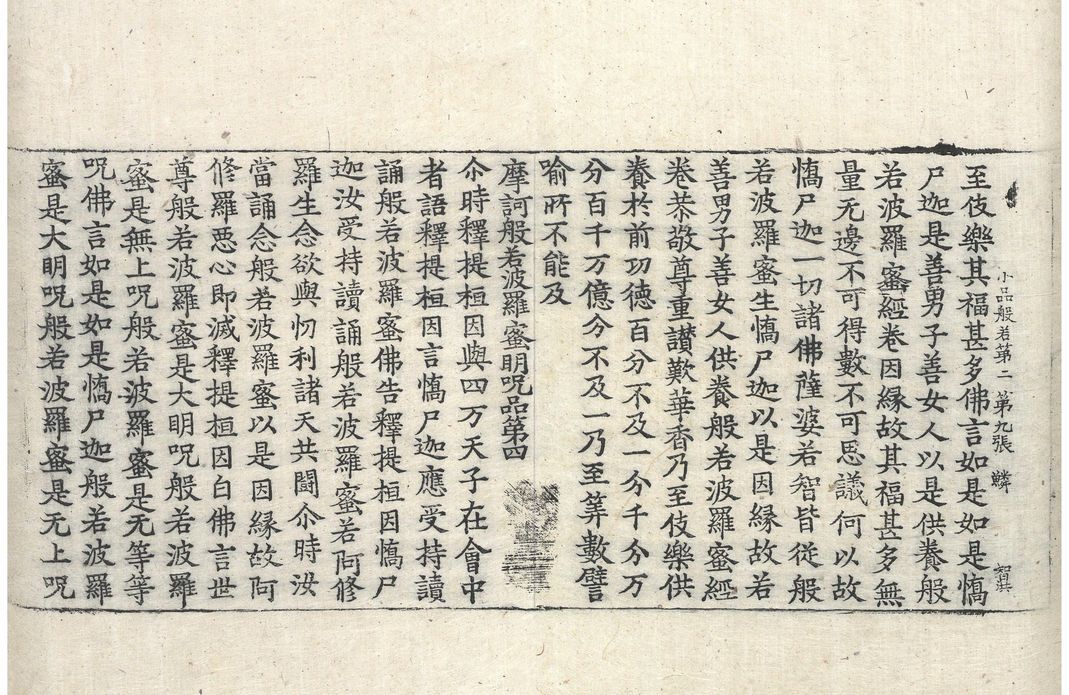 小品般若第二　第九張　鱗　智淇
至伎樂其福甚多佛言如是如是憍
尸迦是善男子善女人以是供養般
若波羅蜜經卷因緣故其福甚多無
量无邊不可得數不可思議何以故
憍尸迦一切諸佛薩婆若智皆從般
若波羅蜜生憍尸迦以是因緣故若
善男子善女人供養般若波羅蜜經
卷恭敬尊重讃歎華香乃至伎樂供
養於前功德百分不及一分千分万
分百千万億分不及一乃至筭數譬
喻所不能及
摩訶般若波羅蜜明呪品第四
尒時釋提桓因與四万天子在會中
者語釋提桓因言憍尸迦應受持讀
誦般若波羅蜜佛告釋提桓因憍尸
迦汝受持讀誦般若波羅蜜若阿修
羅生念欲與忉利諸天共鬪尒時汝
當誦念般若波羅蜜以是因緣故阿
修羅惡心即滅釋提桓因白佛言世
尊般若波羅蜜是大明呪般若波羅
蜜是無上呪般若波羅蜜是无等等
呪佛言如是如是憍尸迦般若波羅
蜜是大明呪般若波羅蜜是无上呪